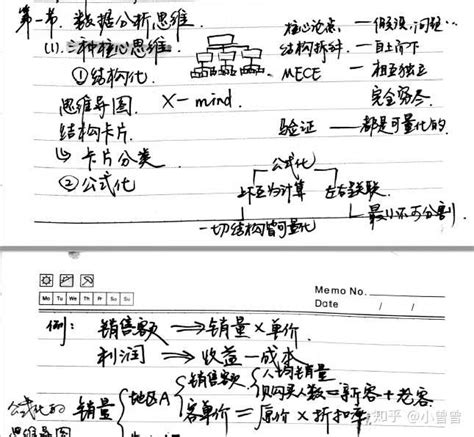 第一节.数据分析思维
(1).三种核心思维.
①结构化
思维导图. X-mind.
结构卡片
↳ 卡片分类
②公式化
核心论点. — 假设,问题…
结构拆解. — 自上而下
MECE — 相互独立
完全穷尽.
验证 — 都是可量化的.
公式化
上下互为计算 左右关联
最小不可分割.
一切结构皆可量化
Mo Tu We Th Fr Sa Su
Memo No.
Date / /
例: 销售额 ⇒ 销量×单价.
利润 ⇒ 收益—成本
公式化的 销量 地区A 销售额 人均销量
购买人数=新客+老客
客单价=原价×折扣率
思维导图
知乎 @小曾曾